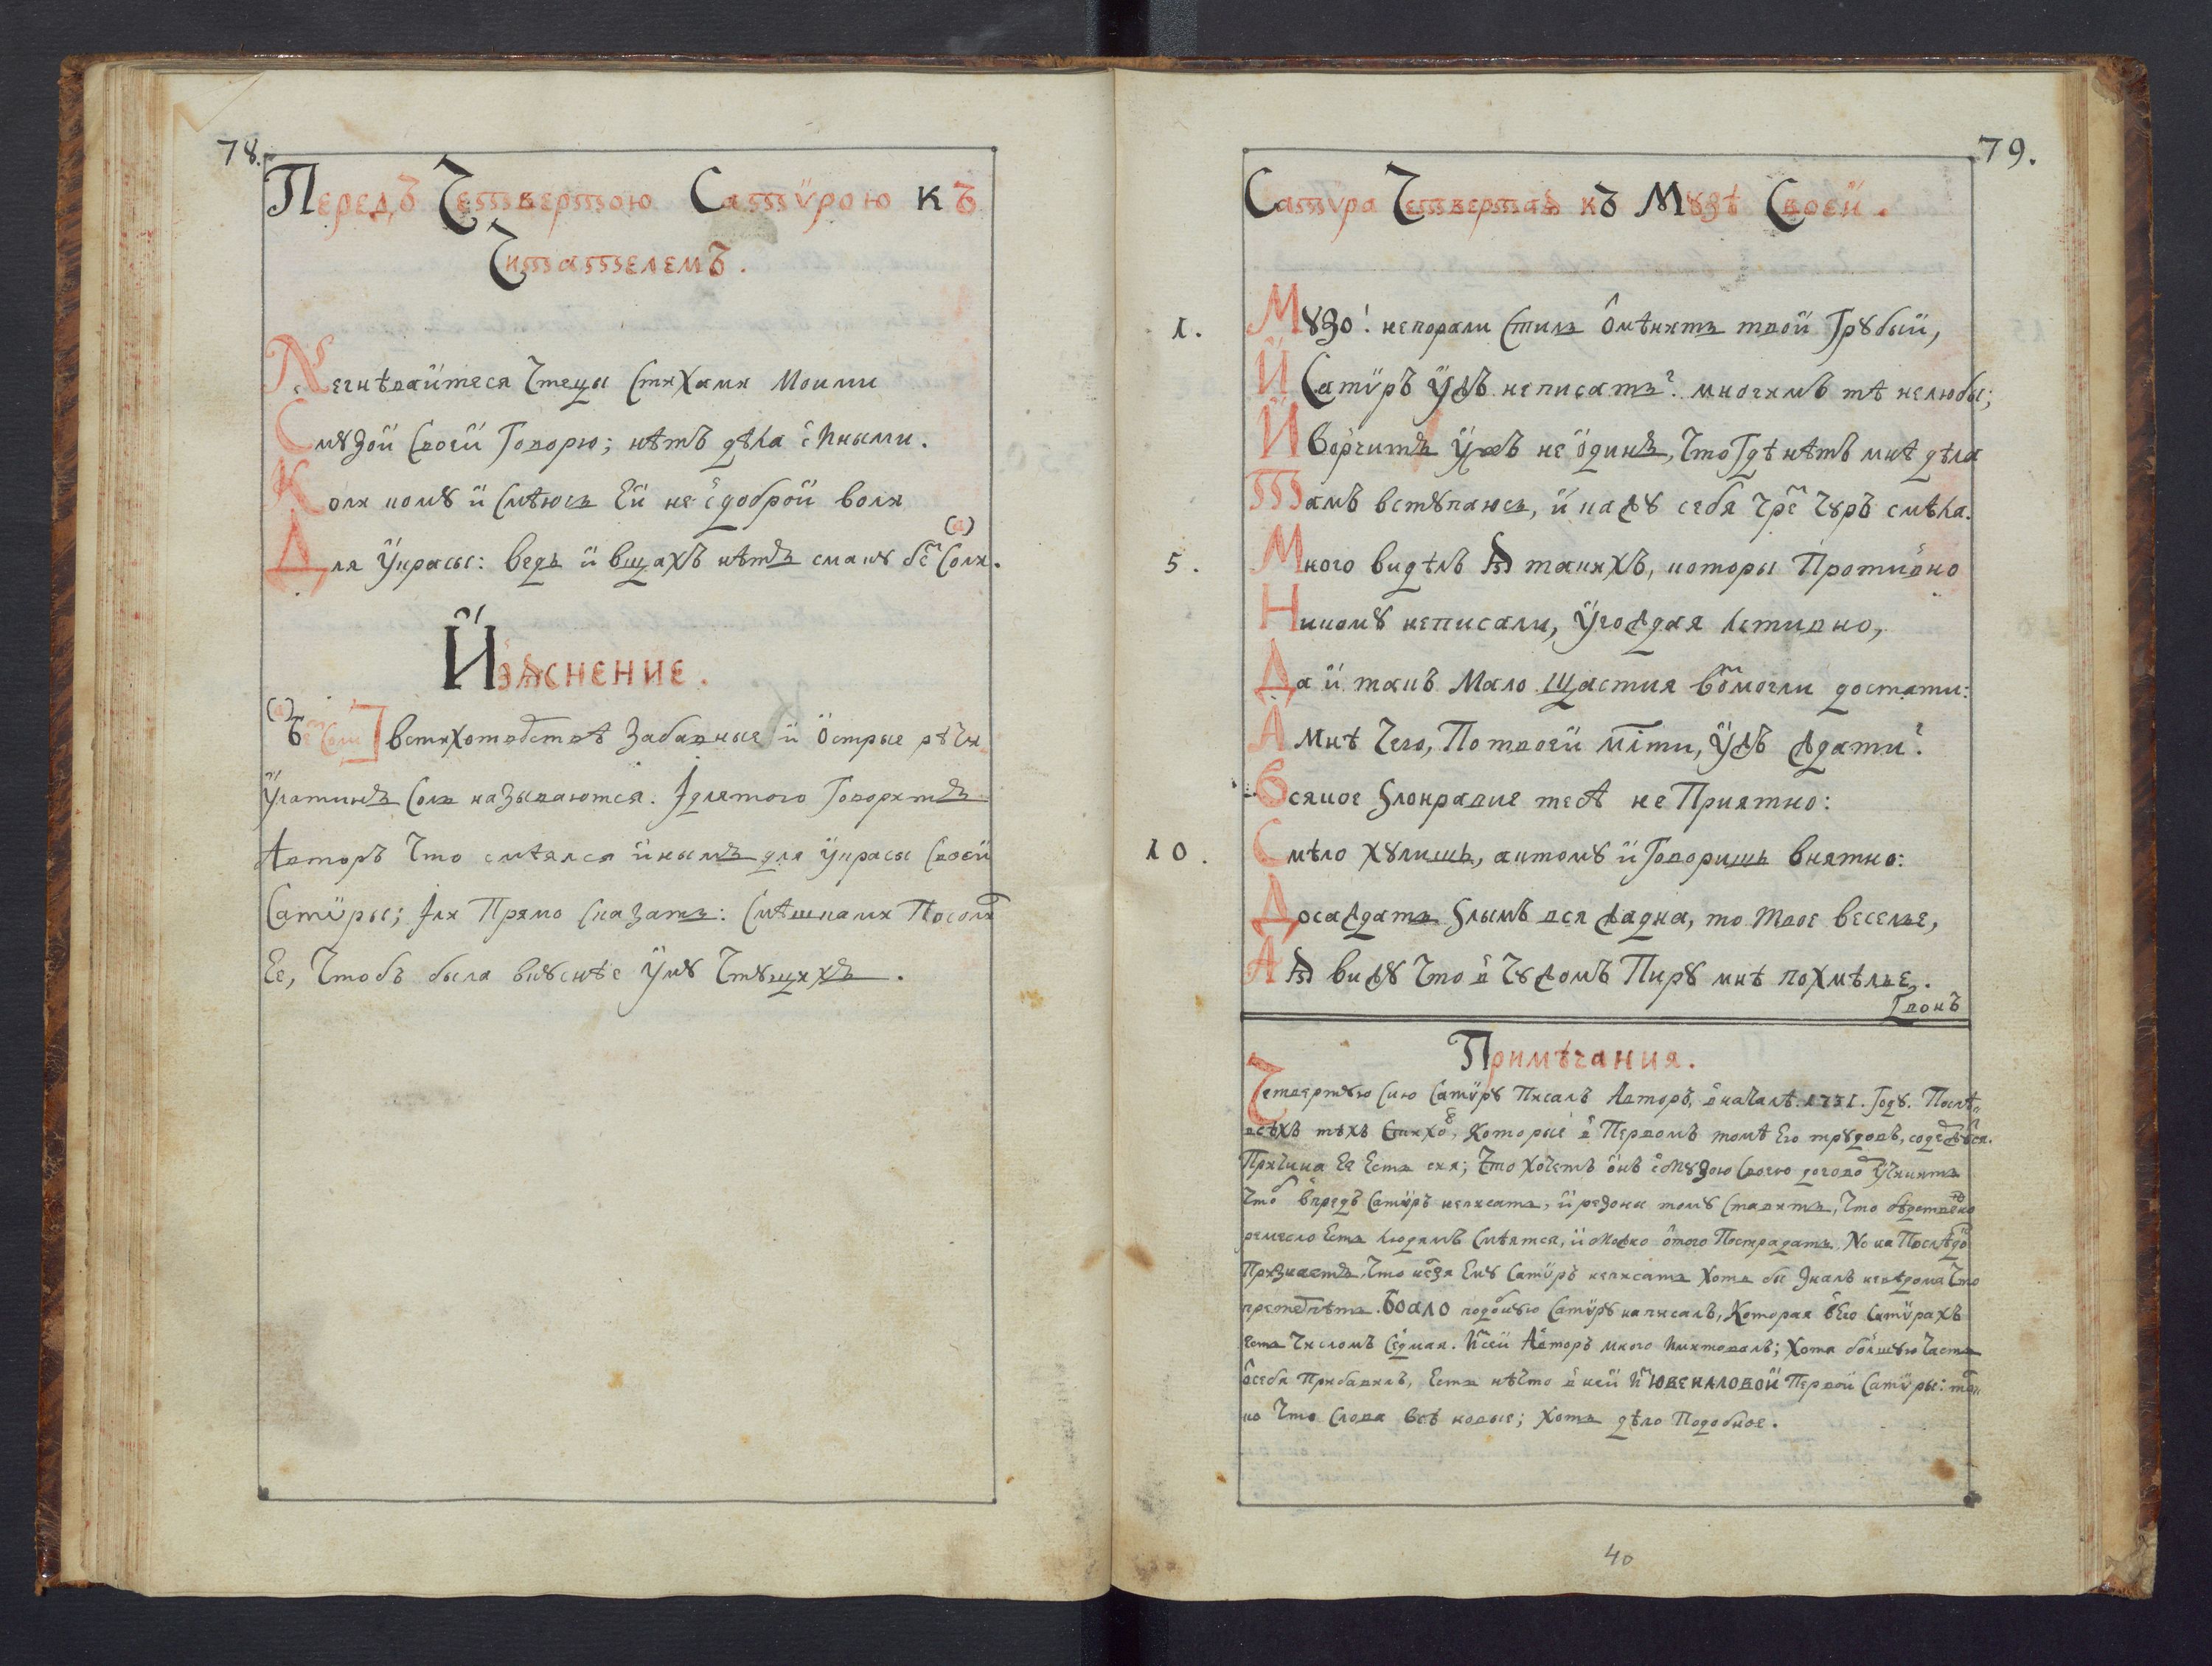 78.
Передъ Четвертою Сатѵрою къ
Читателемъ.
Негнѣвайтеся Чтецы Стихами Моими
Смꙋзой Своей Говорю; нѣтъ дѣла с Иными.
Коли комꙋ и Смѣюсь Ей не с доброй воли
(а)
Для Украсы: ведь и вщахъ нѣтъ смакꙋ бе Соли.
Изѧснение.
(а) бе Соли] встихотвоствѣ Забавные и Острые рѣчи
Улатинъ Соль называются. Iдлятого Говоритъ
Авторъ Что смѣялся инымъ для украсы Своей
Сатѵры; Iли Прямо Сказать: Смѣшками Посолил
Ее, Чтобъ была вкꙋснѣе Умꙋ Чтꙋщихъ.
79.
Сатѵра Четвертаѧ къ Мꙋзѣ Своей.
1. Мꙋзо! непорали Стиль Омѣнить твой Грꙋбый,
И Сатѵръ Ужъ неписать? многимъ тѣ нелюбы;
И Ворчитъ Ужъ не одинъ, Что Гдѣ нѣтъ мнѣ дѣла
Тамъ встꙋпаюсь, и кажꙋ себя чре Чꙋръ смѣла.
5. Много видѣлъ Ꙗ такихъ, которы Противно
Никомꙋ неписали, Угождая Лстивно,
Да и такъ Мало Щастия возмогли достати:
А Мнѣ Чего, По твоей млти, Ужъ Ждати?
Всякое Ѕлонравие тебѣ не Приятно:
10. Смѣло хꙋлишь, актомꙋ и Говоришь внятно:
Досаждать Ѕлымъ вся жадна, то Твое веселье,
А Ꙗ вижꙋ Что в Чꙋжомъ Пирꙋ мнѣ похмѣлье.
Гвонъ
Примѣчания.
Четвертꙋю Сию Сатѵрꙋ Писалъ Авторъ, вначалѣ 1731. Годꙋ. Послѣ
всѣхъ тѣхъ Стихов, Которые в Первомъ томѣ Его трꙋдовъ, содержатся.
Причина Ее Есть сия; Что хочетъ онъ сМꙋзою Своею договор Учинить
Чтоб впредь Сатѵръ неписать, и резоны томꙋ Ставитъ, Что бѣдственно
ремесло Есть Людямъ Смѣятся, и можно отого Пострадать. Но на Послѣдок
Признаетъ, Что нелзя Емꙋ Сатѵръ неписать Хоть бы Зналъ невѣдома Что
претерпѣть. БОАЛО подобнꙋю Сатѵрꙋ написалъ, Которая вЕго Сатѵрахъ
есть Числомъ Седмая. Исей Авторъ много Имитовалъ; Хотя болшꙋю Часть
Осебя Прибавилъ, Есть нѣчто в ней Из ЮВЕНАЛОВОЙ Первой Сатѵры: тол
ко Что Слова Всѣ новые; Хоть дѣло Подобное.
40